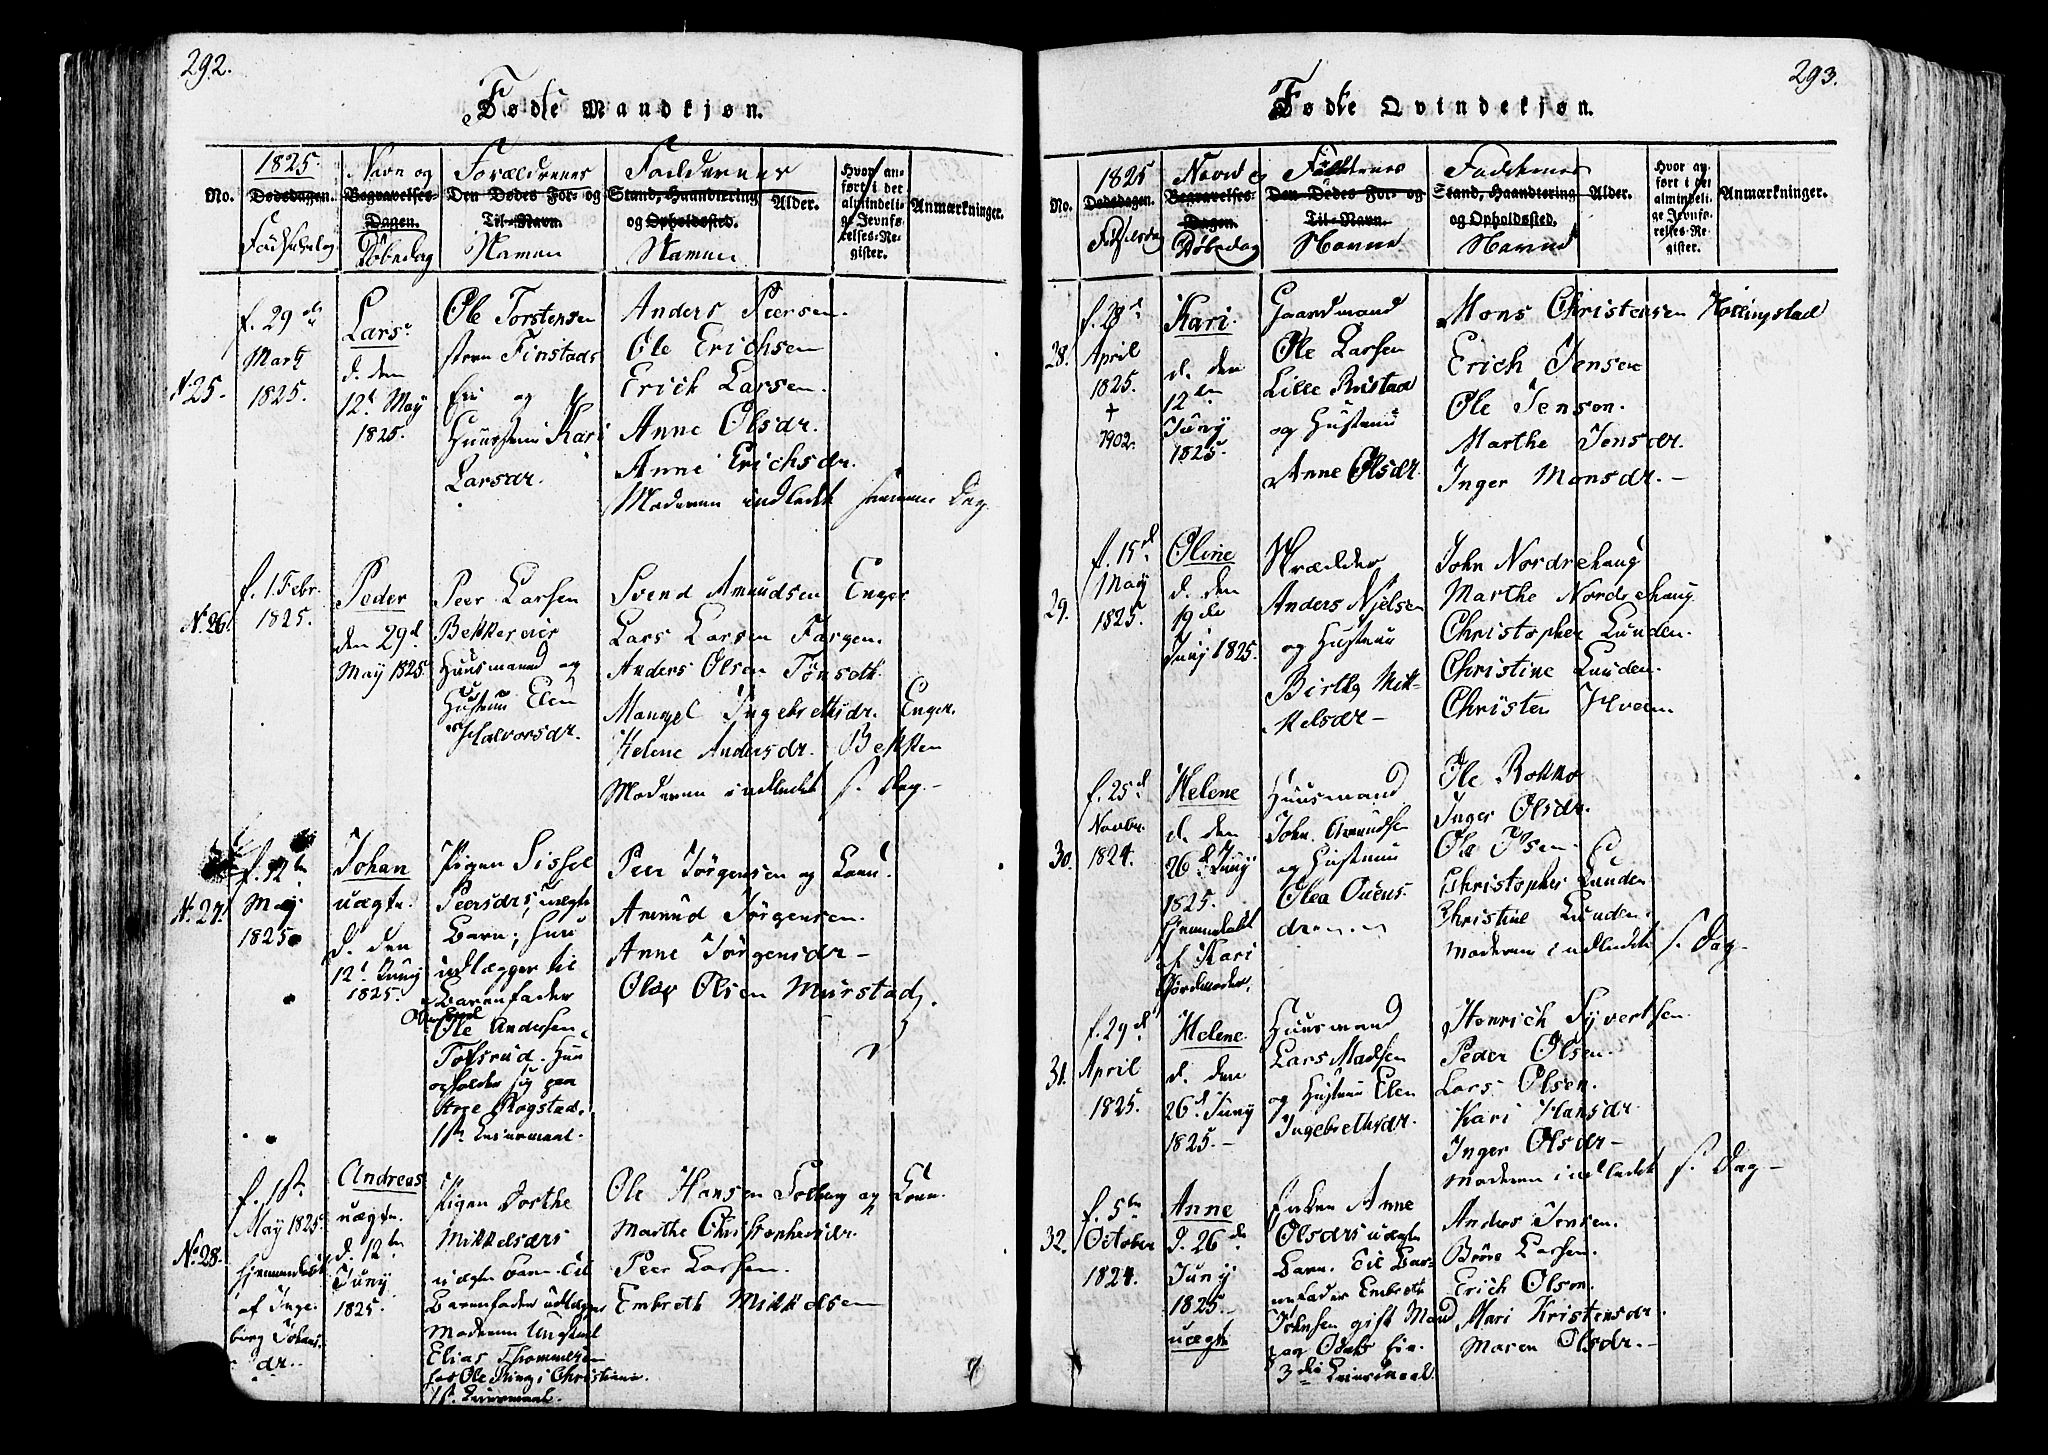 292.
Føde Mandkjøn.
1825. Navn og Forældrenes Faddernes
No. Dødsdagen. Begravelses-Dagen. Den Dødes For- og Til-Navn. Stand, Haandtering og Opholdssted. Alder. Hvor anført i det almindelige Jevnførelses-Register. Anmærkninger.
Fødselsdag Døbedag Namen Namen
N. 25.
f. 29de
Marty
1825.
Lars
d. den
12t May
1825.
Ole Torstensen
Finstads
Eie og
Hustrue Kari
Larsdr.
Anders Peersen.
Ole Erichsen
Erich Larsen.
Anne Olsdr.
Anne Erichsdr.
Moderen indledt samme Dag.
N. 26.
f. 1. Febr.
1825.
Peder
den 29d
May 1825.
Peer Larsen
Bekkereie
Huusmand og
Hustrue Elen
Halvorsdr.
Svend Amundsen Enger
Lars Larsen Fargen.
Anders Olsen Tønseth.
Mangel Ingebrethsdr. Enger.
Helene Andersdr. Bekken
Moderen indledet s. Dag.-
N. 27.
f. 12te
May
1825.
Johan
uægte.
d. den
12t Juny
1825.
Pigen Sissel
Peersdrs uægte
Barn; hun
udlægger til
Barnefader
Ole Andersen
Tolsrud. Hun
opholder sig paa
Rogstad.
1ste Leiermaal.
Peer Jørgensen og Kone.
Amund Jørgensen.
Anne Jørgensdr-
Olav Olsen Murstad.
No. 28.
f. 1ste
May 1825.
hjemmedøbt
af Inge-
borg Johans-
dr.
Andreas
uægte.
d. 12te
Juny
1825.
Pigen Dorthe
Mikkelsdrs
uægte Barn. Til
Barnefader udlægges
Moderen Ungkarl
Elias Thommesen
hos Ole Ring i Christiania.
1st. Leiermaal.
Ole Hansen Solberg og Kone.
Marthe Christophersdr.
Peer Larsen.
Embreth Mikkelsen
293.
Føde Qvindekjøn.
1825 Navne Forældrenes Faddernes
No. Dødsdagen. Begravelses-Dagen. Den Dødes For- og Til-Navn. Stand, Haandtering og Opholdssted. Alder. Hvor anført i det almindelige Jevnførelses-Register. Anmærkninger.
Fødselsdag Døbedag Navne Navne
28.
April
1825.
+
1902.
Kari.
d. den
12te
Juny
1825.
Gaardmand
Ole Larsen
Lille
og Hustrue
Anne Olsdr.
Mons Christensen Hollingstad
Erich Jensen
Ole Jenson.
Marthe Jensdr.
Inger Monsdr.-
29.
f. 15d
May
1825.
Oline
d. den
19de
Juny 1825.
Skrædder
Anders Njelsen
og Hustrue
Birthe Mik-
kelsdr-
John Nordrehaug
Marthe Nordrehaug
Christopher Lunden.
Christine Lunden.
Christen Hveem.
30.
f. 25d
Novbr.
1824.
Helene
d. den
26d Juny
1825.
hjemmedøbt
af Kari
Jordmoder.
Huusmand
John Amundsen
og Hustrue
Olea
Ole
Inger Olsdr.
Ole Olsen.
Christopher Lunden
Christine Lunden.
Moderen indledet s. Dag-
31.
f. 29d
April
1825.
Helene.
d. den
26d Juny
1825.-
Huusmand
Lars Madsen
og Hustrue Elen
Ingebrethsdr.
Henrich Syvertsen.
Peder Olsen.
Lars Olsen.
Kari Hansdr.
Inger Olsdr-
Moderen indledet s. Dag-
32.
f. 5te
October
1824.
Anne
d. 26de
Juny
1825.-
uægte
Enken Anne
Olsdrs uægte
Barn. Til Bar-
nefader Embreth
Johnsen gift Mand
3die Leiermaal.
Anders Jensen.
Brøre Larsen.
Erich Olson.
Mari Kristensdr.
Maren Olsdr.-